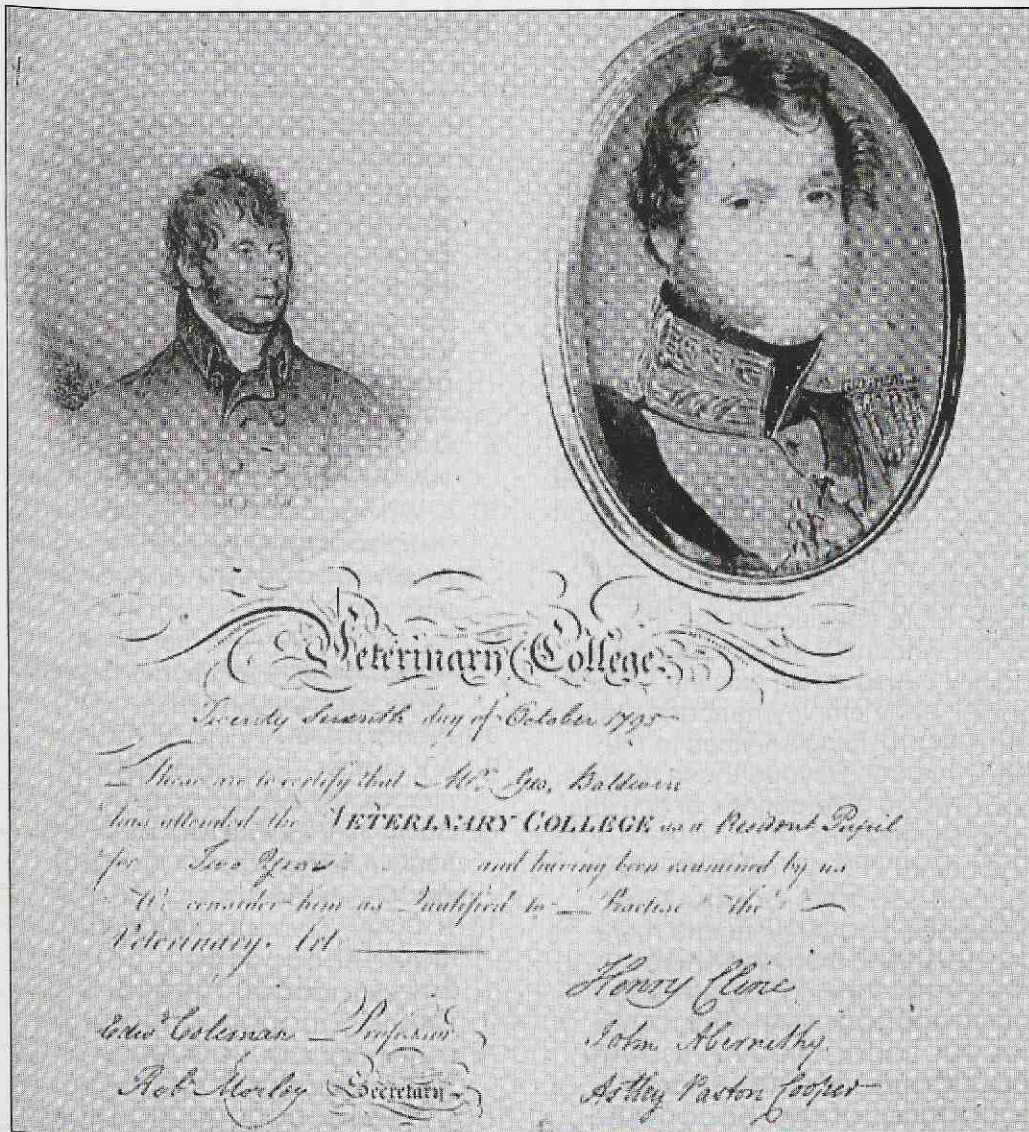 Veterinary College.
Twenty Seventh day of October 1795
These are to certify that Mr. Geo. Baldwin
has attended the VETERINARY COLLEGE as a Resident Pupil
for Two Years and having been examined by us
We consider him as Qualified to Practise the
Veterinary Art
Henry Cline
Edwd. Coleman Professor
John Abernethy
Robt. Morley Secretary
Astley Paston Cooper